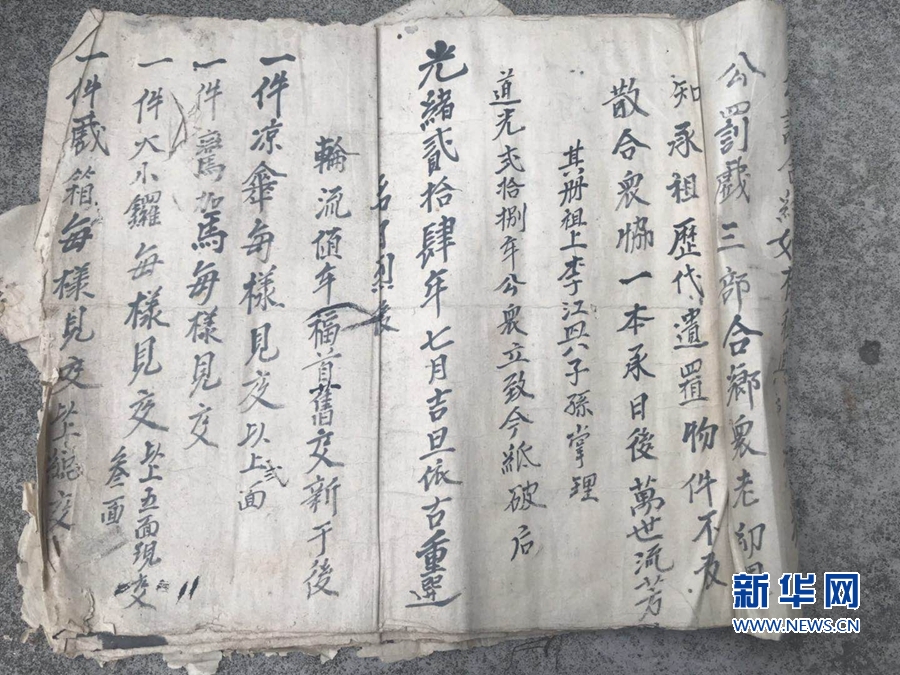 公罰戲三部合鄉衆老幼
知承祖歷代遺置物件不及
散合衆協一本承日後萬世流芳
其册祖上李江興八子孫掌理
道光弍拾捌年公衆立致今紙破后
光緒貳拾肆年七月吉旦依古重選
名了列後
輪流值年福首舊交新于後
一件凉傘每樣見交以上弍面
一件馬每樣見交
一件大小鑼每樣見交以上五面現交
叁面
一件戲箱每樣見交以上總交
新华网
WWW.NEWS.CN